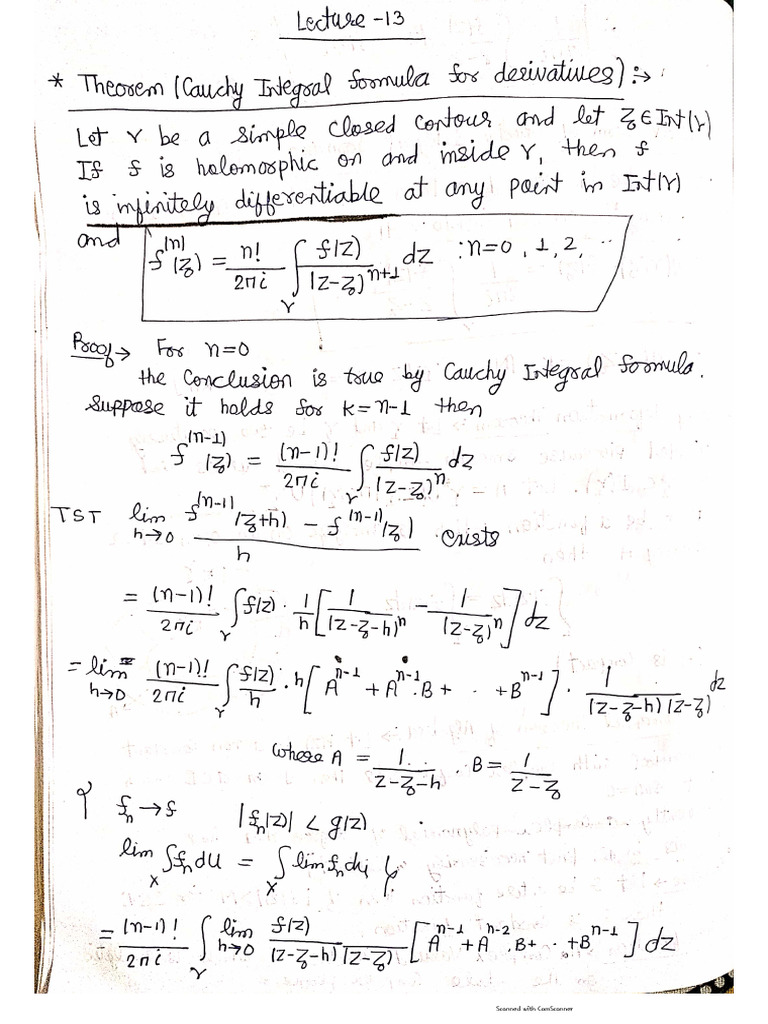 Lecture -13
* Theorem (Cauchy Integral formula for derivatives) :→
Let γ be a simple closed contour and let z₀ ∈ Int(γ)
If f is holomorphic on and inside γ, then f
is infinitely differentiable at any point in Int(γ)
and f^(n)(z₀) = n!/2πi ∫_γ f(z)/(z-z₀)^(n+1) dz : n=0, 1, 2, ..
Proof → For n=0
the conclusion is true by Cauchy Integral formula.
Suppose it holds for k=n-1 then
f^(n-1)(z₀) = (n-1)!/2πi ∫_γ f(z)/(z-z₀)^n dz
TST lim_{h→0} [f^(n-1)(z₀+h) - f^(n-1)(z₀)]/h exists
= (n-1)!/2πi ∫_γ f(z) · 1/h [1/(z-z₀-h)^n - 1/(z-z₀)^n] dz
= lim_{h→0} (n-1)!/2πi ∫_γ f(z)/h · h [A^(n-1) + A^(n-1)·B + · · + B^(n-1)] · 1/((z-z₀-h)(z-z₀)) dz
where A = 1/(z-z₀-h) . B = 1/(z-z₀)
fₙ → f |fₙ(z)| < g(z)
lim ∫_X fₙ du = ∫_X lim fₙ du
= (n-1)!/2πi ∫_γ lim_{h→0} f(z)/((z-z₀-h)(z-z₀)) [A^(n-1) + A^(n-2)·B + · · + B^(n-1)] dz
Scanned with CamScanner